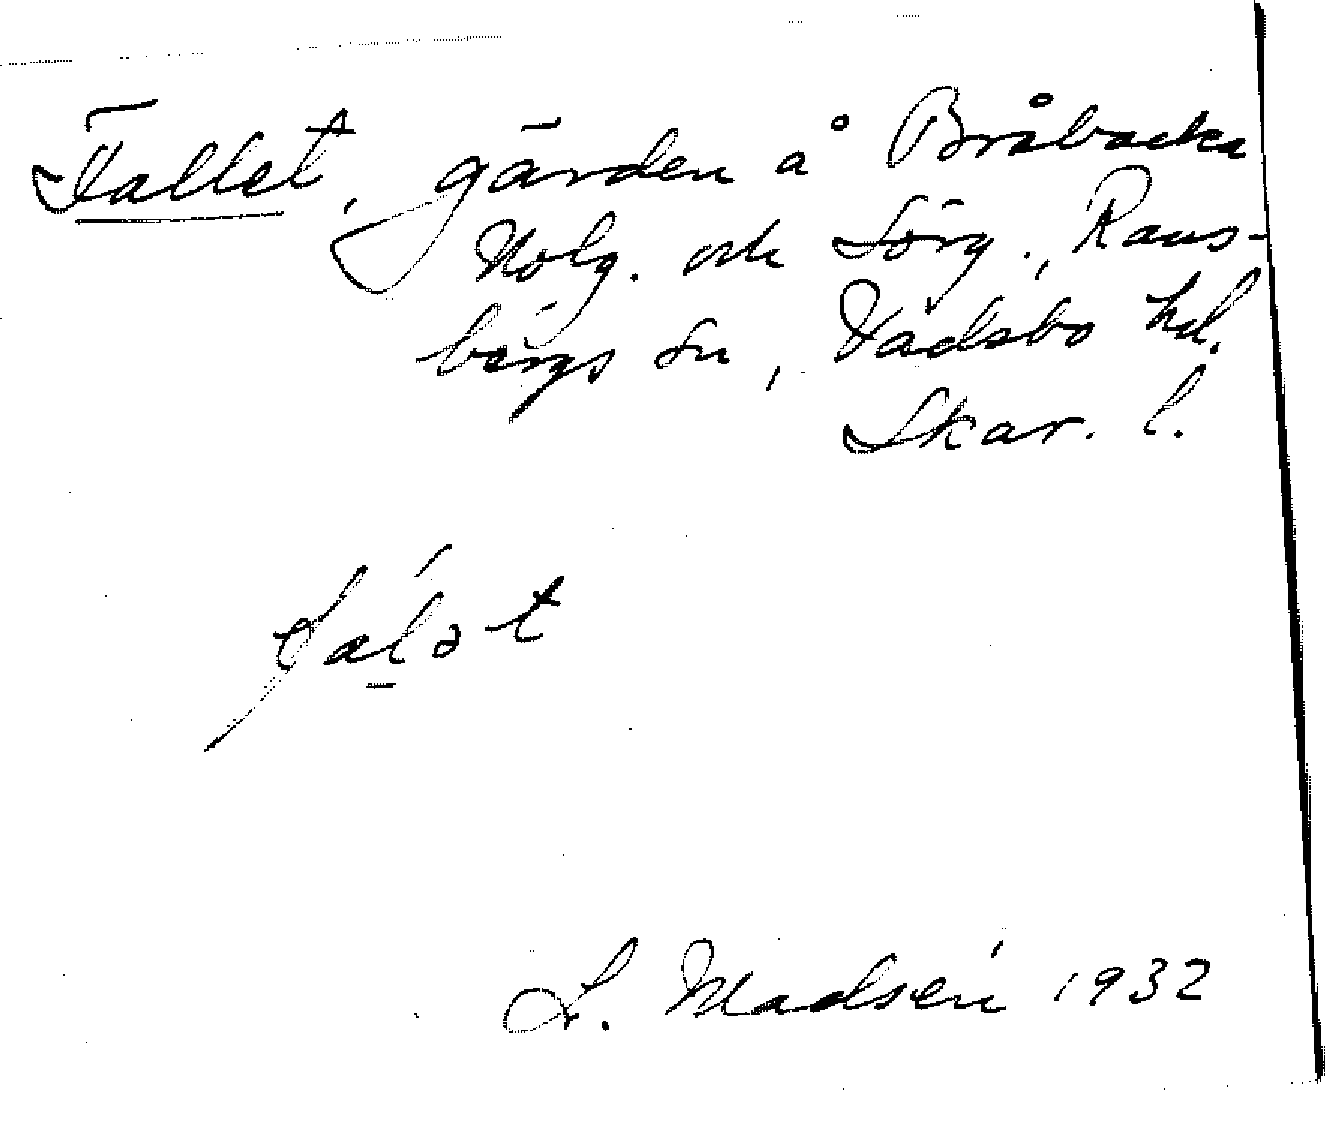 Fallet, gården å Bråbacka
Nolg. och Sörg., Rans-
bergs sn, Vadsbo hd.
Skar. l.
fálət
L. Madsén 1932